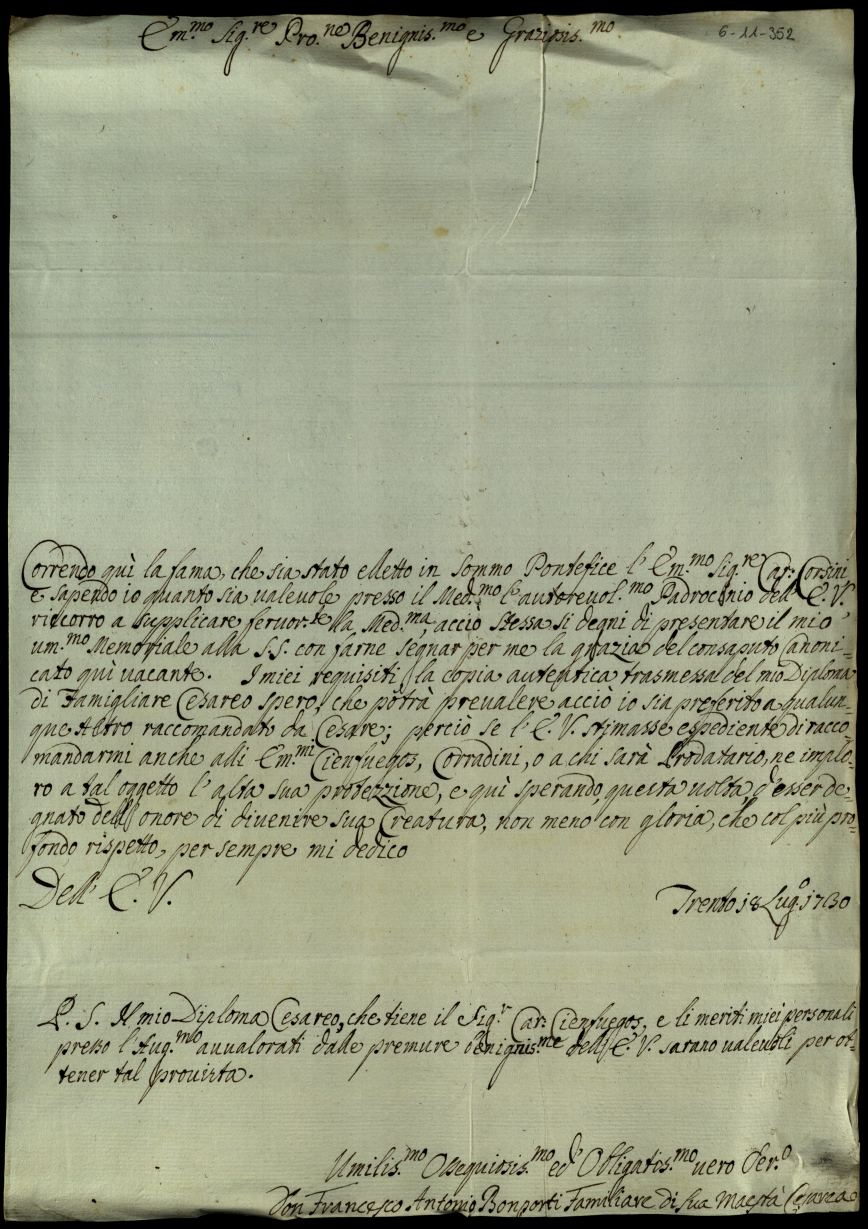 Em.mo Sig.re Pro.ne Benignis.mo e Graziosis.mo
6-11-352
Correndo quì la fama, che sia stato elletto in Sommo Pontefice l' Em.mo Sig.re Car: Corsini
e sapendo io quanto sia valevole presso il Med.mo l'autorevol.mo Padrocinio dell' E. V.
riccorro a supplicare fervor.te la Med.ma, acciò stessa si degni di presentare il mio
um.mo Memoriale alla S.S. con farne segnar per me la grazia del consaputo Canoni=
cato quì vacante. I miei requisiti (la copia autentica trasmessa del mio Diploma
di Famigliare Cesareo spero, che potrà prevalere acciò io sia preferito a qualun=
que Altro raccomandato da Cesare; perciò se l' E. V. stimasse espediente di racco=
mandarmi anche alli Em.mi Cienfuegos, Corradini, o a chi sarà Prodatario, ne implo=
ro a tal oggetto l' alta sua protezzione, e quì sperando, questa volta d'esser de=
gnato dell' onore di divenire sua Creatura, non meno con gloria, che col più pro=
fondo rispetto, per sempre mi dedico
Dell' E. V.
Trento 18 Lug.o 1730
P. S. Il mio Diploma Cesareo, che tiene il Sig.r Car: Cienfuegos, e li meriti miei personali
presso l'Aug.mo avvalorati dalle premure benignis.me dell' E. V. sarano valevoli per ot=
tener tal provista.
Umilis.mo Ossequiosis.mo ed Obligatis.mo vero Ser.o
Don Francesco Antonio Bonporti Familiare di Sua Maestà Cesarea